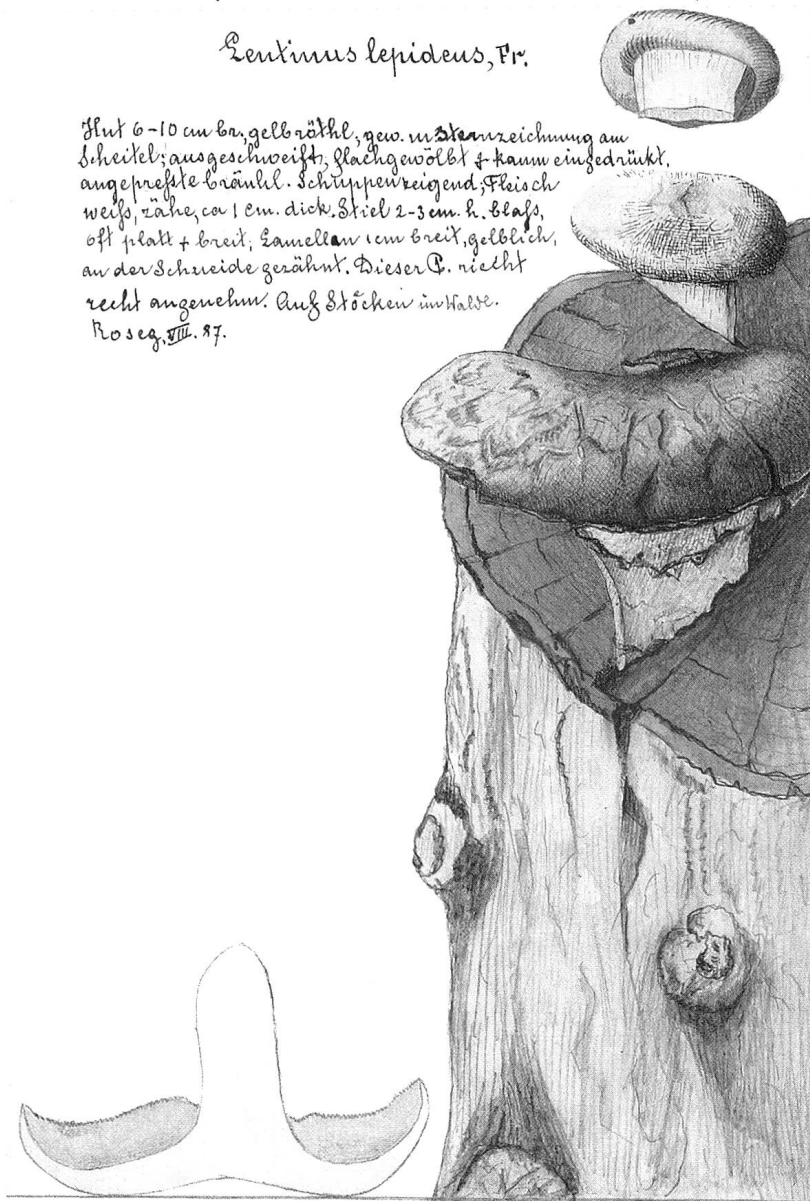 Lentinus lepideus, Fr.
Hut 6-10 cm br., gelbröthl., gew. m Sternzeichnung am
Scheitel; ausgeschweift, flachgewölbt + kaum eingedrükt,
angepreßte bräunl. Schuppen zeigend; Fleisch
weiß, zähe, ca 1 cm. dick. Stiel 2-3 cm. h. blaß,
oft platt + breit, Lamellen 1 cm breit, gelblich,
an der Schneide gezähnt. Dieser P. riecht
recht angenehm. Auf Stöcken im Walde.
Roseg, VIII. 87.